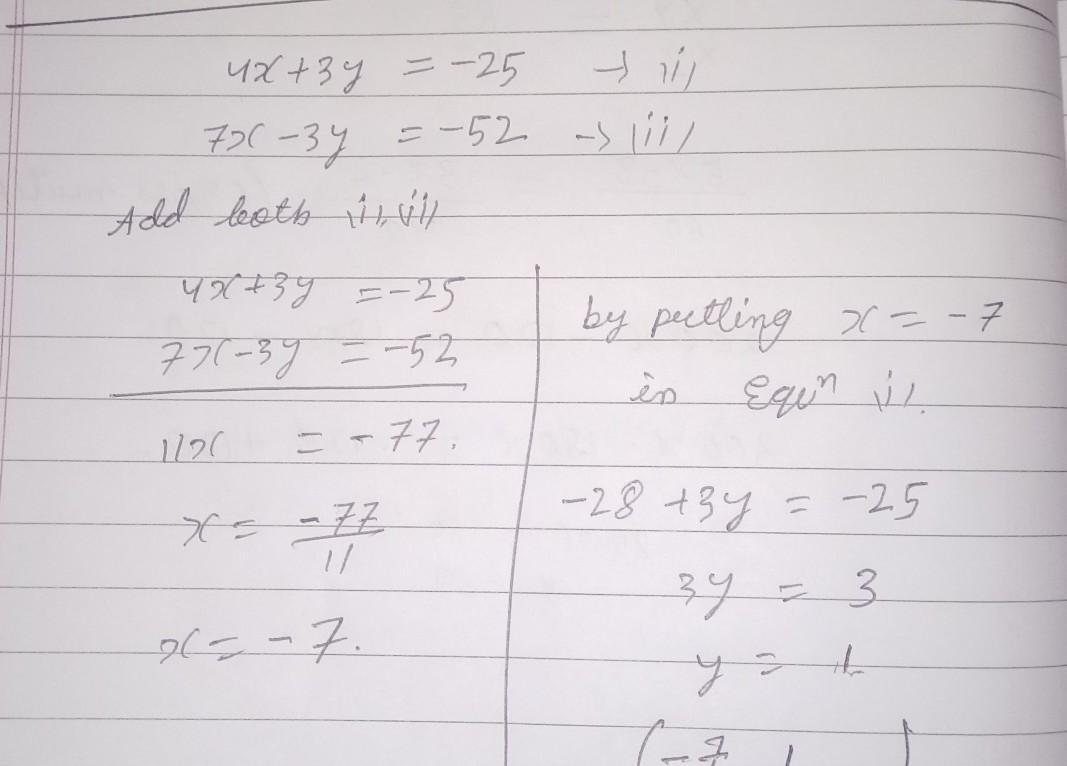 4x+3y = -25 → (i)
7x-3y = -52 → (ii)
Add both (i), (ii)
4x+3y = -25
7x-3y = -52
11x = -77.
x = -77/11
x = -7.
by putting x = -7
in Equⁿ (i).
-28 +3y = -25
3y = 3
y = 1
(-7